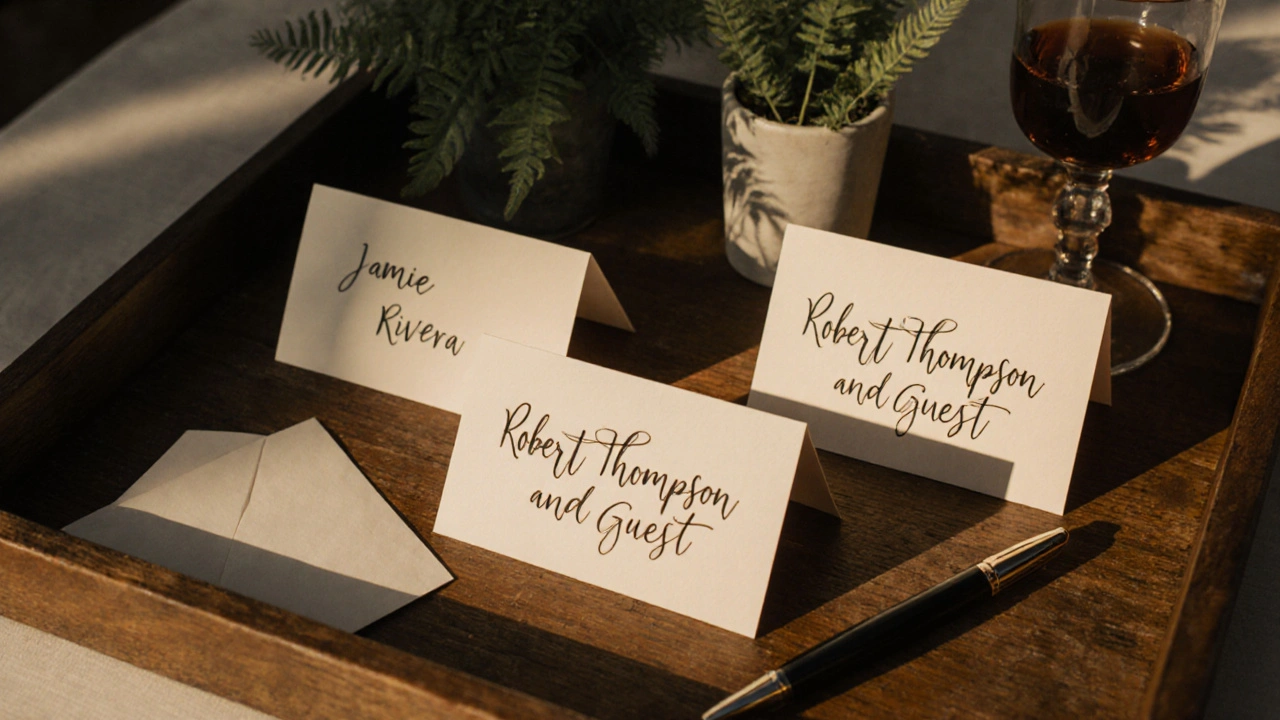 Jamie
Rivera
Robert Thompson
and Guest
Robert Thompson
and Guest